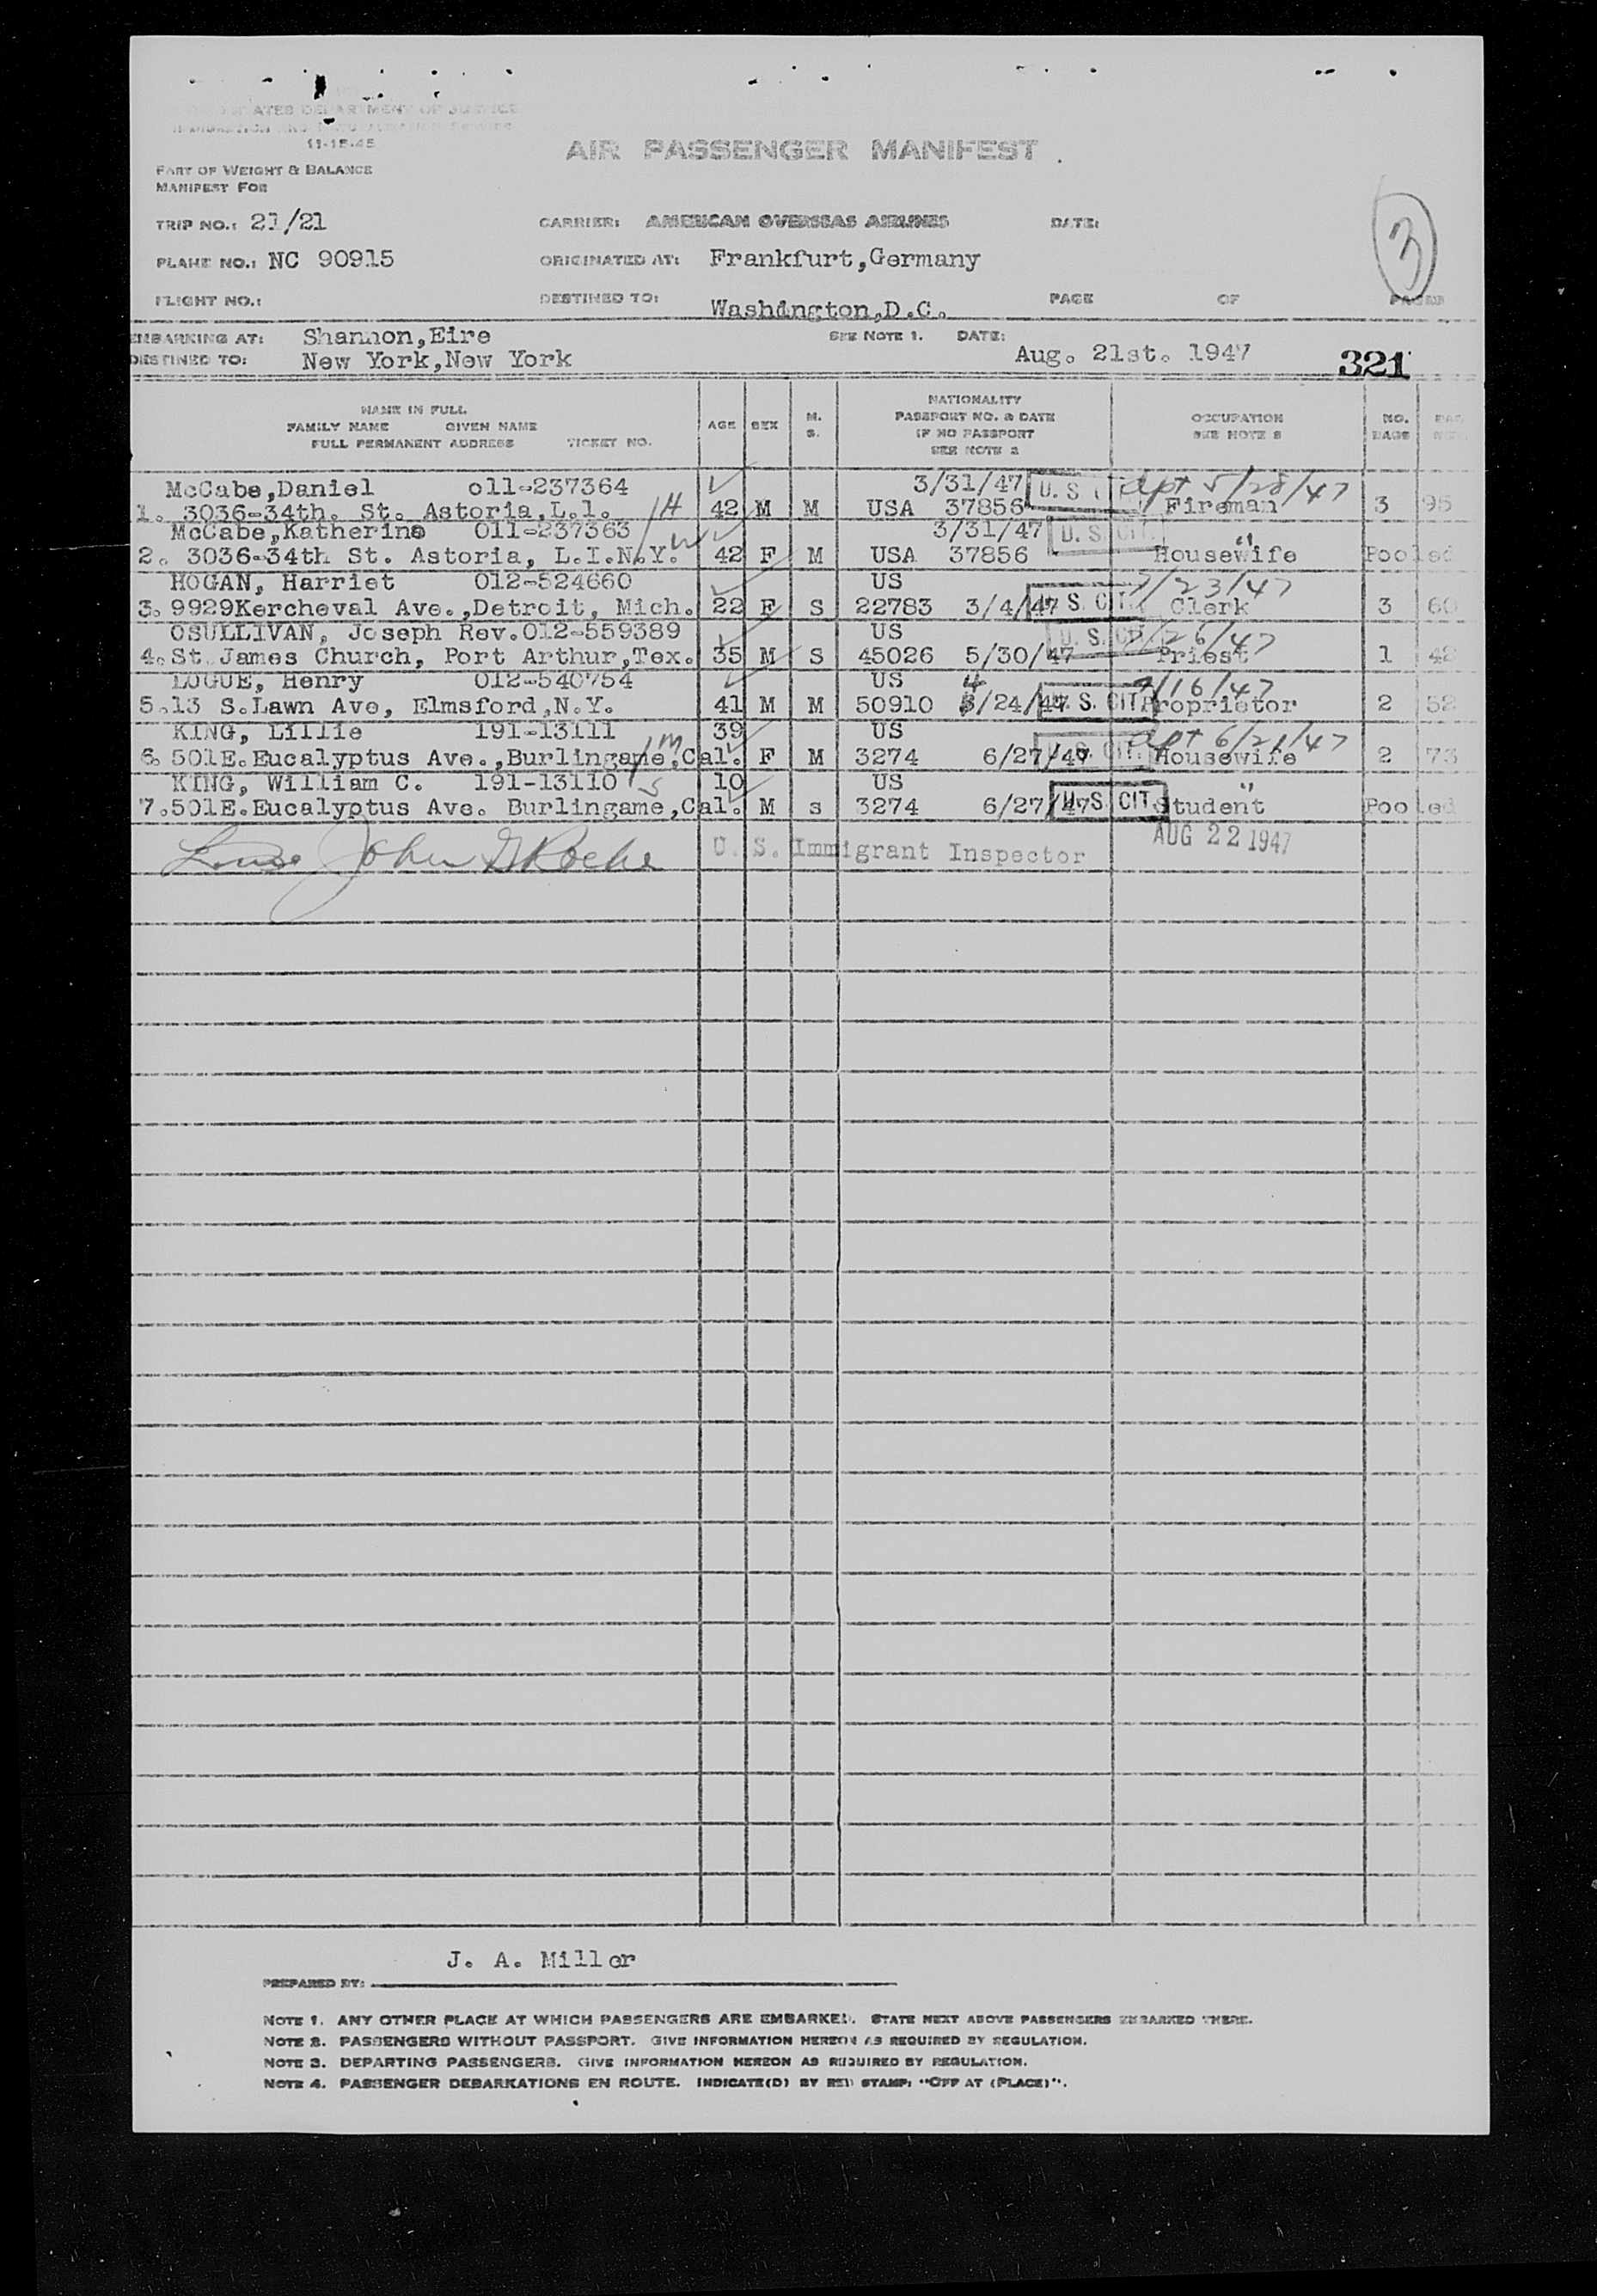 ATES DEPARTMENT OF JUSTICE
11-15-45
AIR PASSENGER MANIFEST
PART OF WEIGHT & BALANCE
MANIFEST FOR
TRIP NO.: 21/21 CARRIER: AMERICAN OVERSEAS AIRLINES DATE:
3
PLANE NO.: NC 90915 ORIGINATED AT: Frankfurt,Germany
FLIGHT NO.: DESTINED TO: Washington,D.C. PAGE OF PAGES
EMBARKING AT: Shannon,Eire SEE NOTE 1. DATE: Aug. 21st. 1947
DESTINED TO: New York,New York 321
NAME IN FULL
FAMILY NAME GIVEN NAME
FULL PERMANENT ADDRESS TICKET NO.
AGE SEX M. S.
NATIONALITY
PASSPORT NO. & DATE
IF NO PASSPORT
SEE NOTE 2
OCCUPATION
SEE NOTE 3
NO. BAGS
McCabe,Daniel o11-237364 3/31/47 U.S. dpt 5/28/47
1. 3036-34th. St. Astoria,L.l. H 42 M M USA 37856 Fireman 3 95
McCabe,Katherine O11-237363 3/31/47 U.S. CIT. "
2. 3036-34th St. Astoria, L.I.N.Y. W 42 F M USA 37856 Housewife Pooled
HOGAN, Harriet O12-524660 US /23/47
3. 9929Kercheval Ave.,Detroit, Mich. 22 F S 22783 3/4/47 U.S. CIT. Clerk 3 60
OSULLIVAN, Joseph Rev.O12-559389 US /26/47
4. St James Church, Port Arthur,Tex. 35 M S 45026 5/30/47 U.S. CIT. Priest 1 42
LOGUE, Henry O12-540754 US 4 /16/47
5.13 S.Lawn Ave, Elmsford,N.Y. 41 M M 50910 /24/47 U.S. CIT. Proprietor 2 52
KING, Lillie 191-13111 39 US dpt 6/21/47
6. 501E.Eucalyptus Ave.,Burlingame,Cal. M F M 3274 6/27/47 U.S. CIT. Housewife 2 73
KING, William C. 191-13110 S 10 US "
7.501E.Eucalyptus Ave. Burlingame,Cal. M s 3274 6/27/47 U.S. CIT. Student Pooled
John Roche U. S. Immigrant Inspector AUG 22 1947
J. A. Miller
PREPARED BY:
NOTE 1. ANY OTHER PLACE AT WHICH PASSENGERS ARE EMBARKED. STATE NEXT ABOVE PASSENGERS EMBARKED THERE.
NOTE 2. PASSENGERS WITHOUT PASSPORT. GIVE INFORMATION HEREON AS REQUIRED BY REGULATION.
NOTE 3. DEPARTING PASSENGERS. GIVE INFORMATION HEREON AS REQUIRED BY REGULATION.
NOTE 4. PASSENGER DEBARKATIONS EN ROUTE. INDICATE(D) BY RED STAMP: "OFF AT (PLACE)".